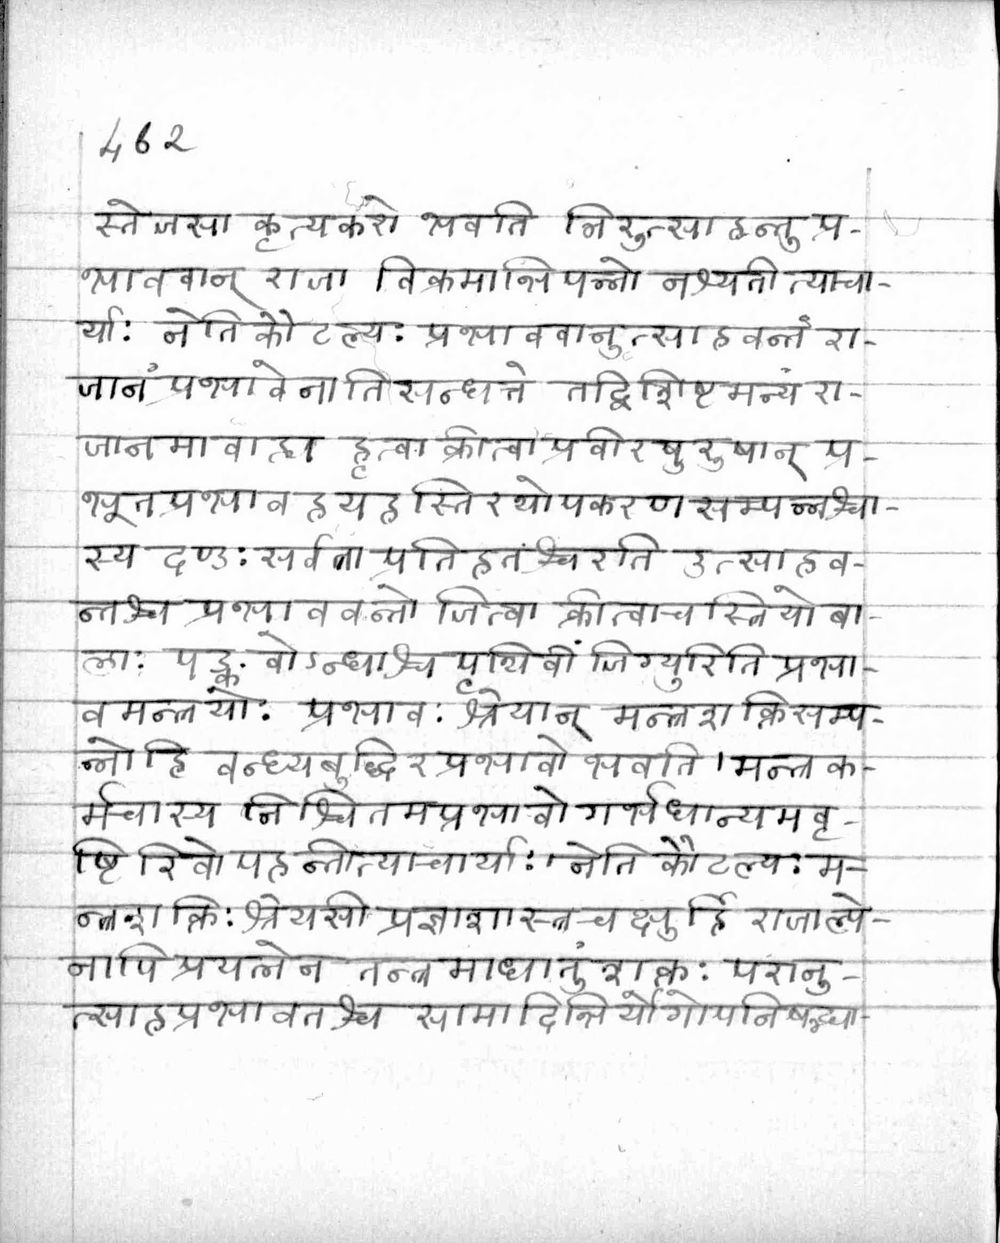 462
स्तेजसा कृत्यकरो भवति निरुत्साहन्तु प्र-
भाववान् राजा विक्रमाभिपन्नो नश्यतीत्याचा-
र्याः नेति कौटल्यः प्रभाववानुत्साहवन्तं रा-
जानं प्रभावेनातिसन्धत्ते तद्विशिष्टमन्यं रा-
जानमावाह्य हृत्वा क्रीत्वा प्रवीरपुरुषान् प्र-
भूतप्रभावहयहस्तिरथोपकरणसम्पन्नश्चा-
स्य दण्डः सर्वत्राप्रतिहतश्चरति उत्साहव-
न्तश्च प्रभाववन्तो जित्वा क्रीत्वाच स्त्रियो बा-
लाः पङ्गवोऽन्धाश्च पृथिवीं जिग्युरिति प्रभा-
वमन्त्रयोः प्रभावः श्रेयान् मन्त्रशक्तिसम्प-
न्नोहि वन्ध्यबुद्धिरप्रभावो भवति । मन्त्रक-
र्मचास्य निश्चितमप्रभावो गर्भधान्यमवृ-
ष्टिरिवोपहन्तीत्याचार्याः । नेति कौटल्यः म-
न्त्रशक्तिः श्रेयसी प्रज्ञाशास्त्रचक्षुर्हि राजाल्पे-
नापि प्रयत्नेन तन्त्रमाधातुं शक्तः परानु-
त्साहप्रभावतश्च सामादिभिर्योगोपनिषद्भ्या-